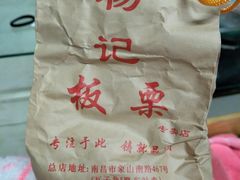 杨记
板栗
专卖店
专注于此 铸就品
总店地址:南昌市象山南路467号